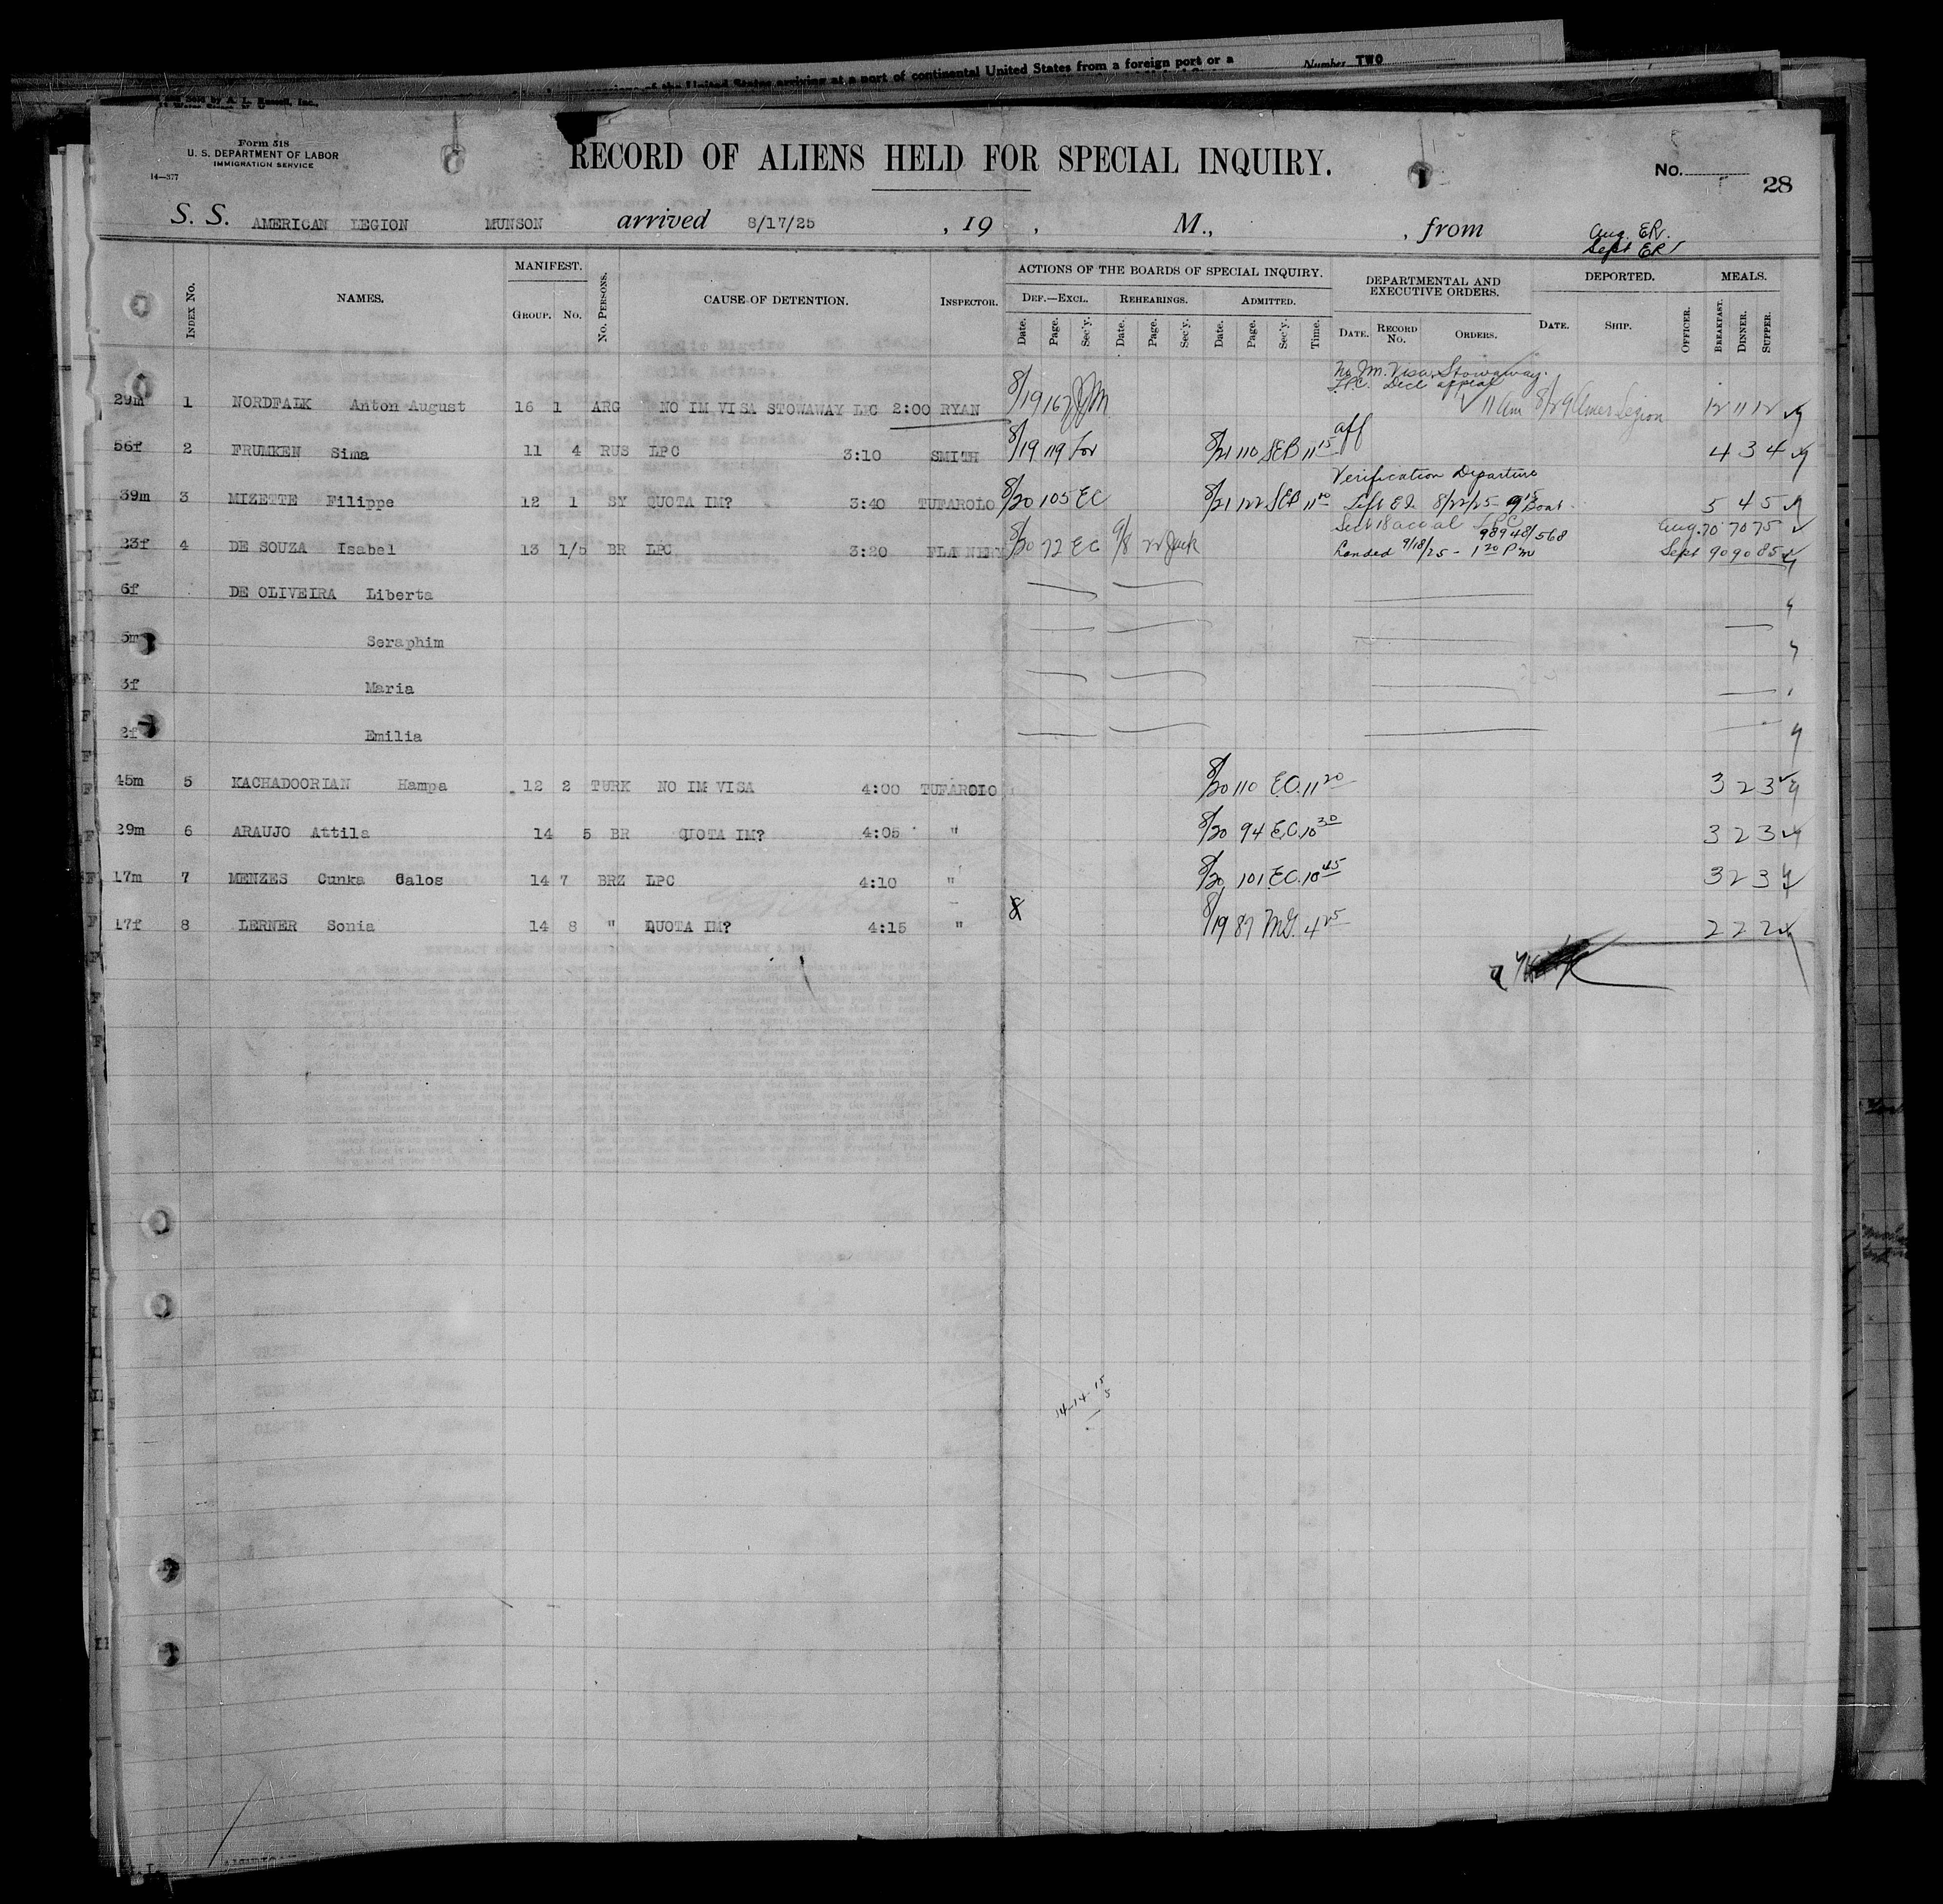 of the United States arriving at a port of continental United States from a foreign port or a
Number TWO
Form 518
U. S. DEPARTMENT OF LABOR
IMMIGRATION SERVICE
14—377
RECORD OF ALIENS HELD FOR SPECIAL INQUIRY.
No.
28
S. S. AMERICAN LEGION MUNSON arrived 8/17/25 , 19 , M., , from
Aug. ER.
Sept ER
INDEX No.
NAMES.
MANIFEST.
GROUP. No.
No. PERSONS.
CAUSE OF DETENTION.
INSPECTOR.
ACTIONS OF THE BOARDS OF SPECIAL INQUIRY.
DEF.—EXCL. REHEARINGS. ADMITTED.
Date. Page. Sec'y. Date. Page. Sec'y. Date. Page. Sec'y. Time.
DEPARTMENTAL AND EXECUTIVE ORDERS.
DATE. RECORD No. ORDERS.
DEPORTED.
DATE. SHIP. OFFICER.
MEALS.
BREAKFAST. DINNER. SUPPER.
No Im. Visa. Stowaway.
LPC. Decl. appeal
29m 1 NORDFALK Anton August 16 1 ARG NO IM VISA STOWAWAY LPC 2:00 RYAN 8/19 167 JJM 11 am 8/29 Amer Legion 12 11 12
aff
56f 2 FRUMKEN Sima 11 4 RUS LPC 3:10 SMITH 8/19 119 8/21 110 SEB 11 15 4 3 4
Verification Departure
39m 3 MIZETTE Filippe 12 1 SY QUOTA IM? 3:40 TUFAROLO 8/20 105 EC 8/21 122 SEB 11 Left E.I. 8/22/25 - 9 15 Boat 5 4 5
98948/568 Aug. 70 70 75
23f 4 DE SOUZA Isabel 13 1/5 BR LPC 3:20 FLANNERY 8/20 72 EC 9/8 22 Landed 9/18/25 - 1 20 Pm Sept 90 90 85
6f DE OLIVEIRA Liberta
5m Seraphim
3f Maria
2f Emilia
45m 5 KACHADOORIAN Hampa 12 2 TURK NO IM VISA 4:00 TUFAROLO 8/20 110 E.C. 11 20 3 2 3
29m 6 ARAUJO Attila 14 5 BR QUOTA IM? 4:05 " 8/20 94 E.C. 10 30 3 2 3
17m 7 MENZES Cunka Calos 14 7 BRZ LPC 4:10 " 8/20 101 E.C. 10 45 3 2 3
17f 8 LERNER Sonia 14 8 " QUOTA IM? 4:15 " 8/19 87 4 25 2 2 2
14-14-15
5